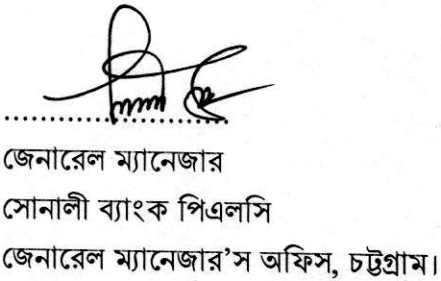 জেনারেল ম্যানেজার
সোনালী ব্যাংক পিএলসি
জেনারেল ম্যানেজার’স অফিস, চট্টগ্রাম।